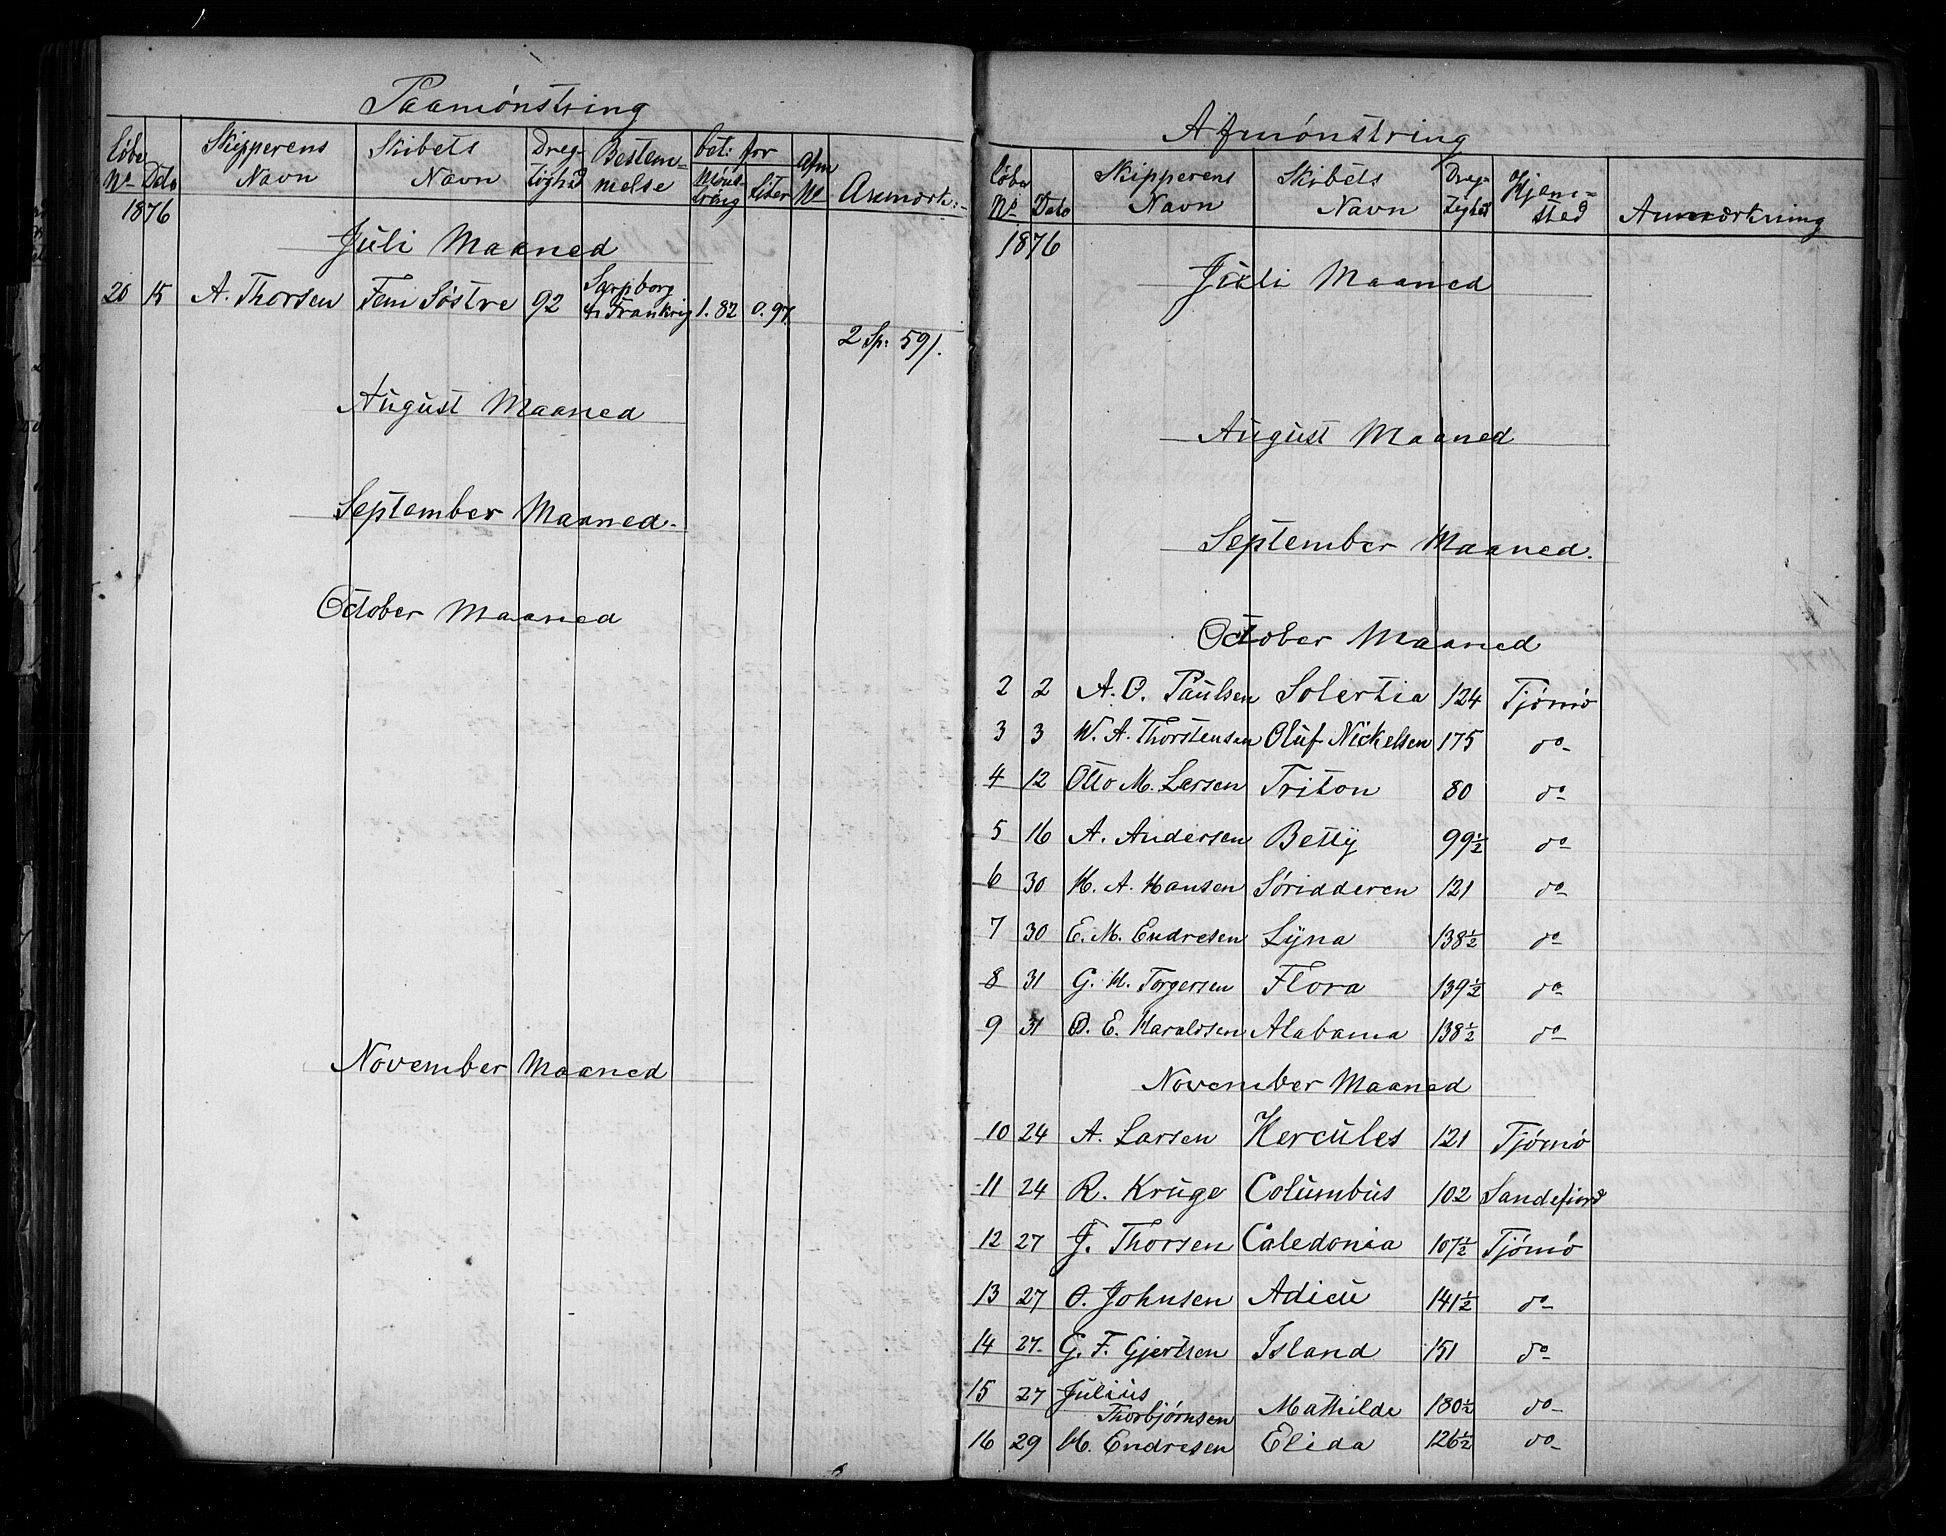 Paamønstring
Løbe No Dato Skipperens Navn Skibets Navn Dreg-tighed Bestem-melse bet: for Møns-tring Lister Afm No Anmærk:
1876
Juli Maaned
20 15 A. Thorsen Fem Søstre 92 Sarpborg Frankrig 1.82 0.97
2 Sp: 59/.
August Maaned
September Maaned.
October Maaned
November Maaned
Afmønstring
Løbe No Dato Skipperens Navn Skibets Navn Dreg-tighed Hjem-sted Anmærkning
1876
Juli Maaned
August Maaned
September Maaned.
October Maaned
2 2 A. O. Paulsen Solertia 124 Tjømø
3 3 W. A. Thorstensen Oluf Nickelsen 175 do
4 12 Otto M. Larsen Triton 80 do
5 16 A. Andersen Betty 99½ do
6 30 H. A. Hansen Søridderen 121 do
7 30 E. M. Endresen Lyna 138½ do
8 31 G. H. Torgersen Flora 139½ do
9 31 O. E. Haraldsen Alabama 138½ do
November Maaned
10 24 A. Larsen Hercules 121 Tjømø
11 24 R. Kruge Columbus 102 Sandefjord
12 27 J. Thorsen Caledonia 107½ Tjømø
13 27 O. Johnsen Adieu 141½ do
14 27. G. F. Gjertsen Island 151 do
15 27 Julius Thorbjørnsen Mathilde 180½ do
16 29 H. Endresen Elida 126½ do